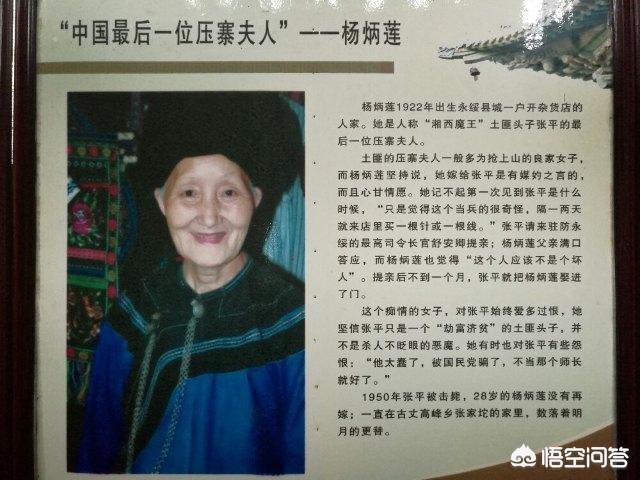 “中国最后一位压寨夫人”——杨炳莲
杨炳莲1922年出生永绥县城一户开杂货店的
人家。她是人称“湘西魔王”土匪头子张平的最
后一位压寨夫人。
土匪的压寨夫人一般多为抢上山的良家女子，
而杨炳莲坚持说，她嫁给张平是有媒妁之言的，
而且心甘情愿。她记不起第一次见到张平是什么
时候，“只是觉得这个当兵的很奇怪，隔一两天
就来店里买一根针或一根线。”张平请来驻防永
绥的最高司令长官舒安卿提亲；杨炳莲父亲满口
答应，而杨炳莲也觉得“这个人应该不是个坏
人”。提亲后不到一个月，张平就把杨炳莲娶进
了门。
这个痴情的女子，对张平始终爱多过恨，她
坚信张平只是一个“劫富济贫”的土匪头子，并
不是杀人不眨眼的恶魔。她有时也对张平有些怨
恨：“他太蠢了，被国民党骗了，不当那个师长
就好了。”
1950年张平被击毙，28岁的杨炳莲没有再
嫁；一直在古丈高峰乡张家坨的家里，数落着
明月的更替。
悟空问答